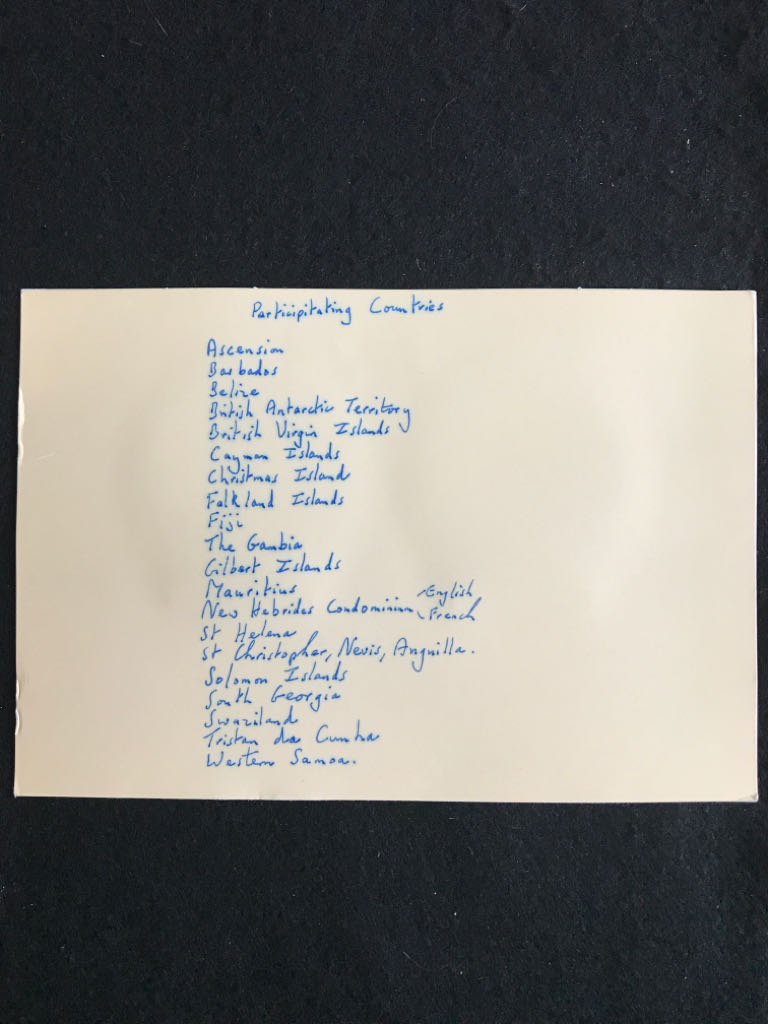 Participitating Countries
Ascension
Barbados
Belize
British Antarctic Territory
British Virgin Islands
Cayman Islands
Christmas Island
Falkland Islands
Fiji
The Gambia
Gilbert Islands
Mauritius
New Hebrides Condominium English
French
St Helena
St Christopher, Nevis, Anguilla.
Solomon Islands
South Georgia
Swaziland
Tristan da Cunha
Western Samoa.